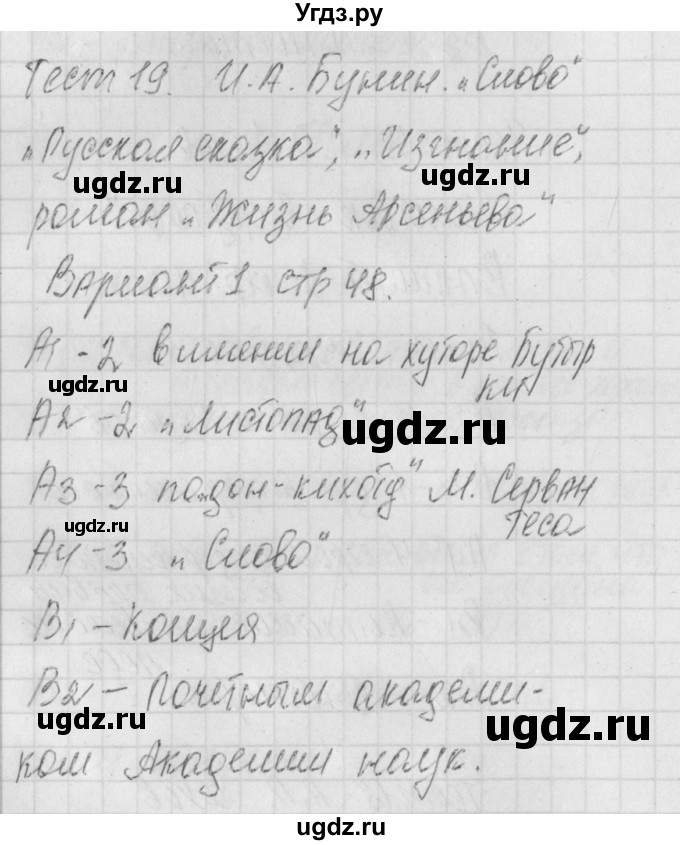 Угдз.ру
Тест 19. И.А. Бунин. „Слово"
„Русская сказка", „Изгнание",
ugdz.ru ugdz.ru
роман „Жизнь Арсеньева"
Вариант 1 стр 48.
А1 - 2 в имении на хуторе Бутыр
ки
ugdz.ru
А2 - 2 „Листопад"
ugdz.ru
А3 - 3 по „дон-кихоту" М. Серван
теса
ugdz.ru
А4 - 3 „Слово"
В1 - Концея
В2 - Почетным академи-
ugdz.ru ugdz.ru
ком Академии наук.
ugdz.ru